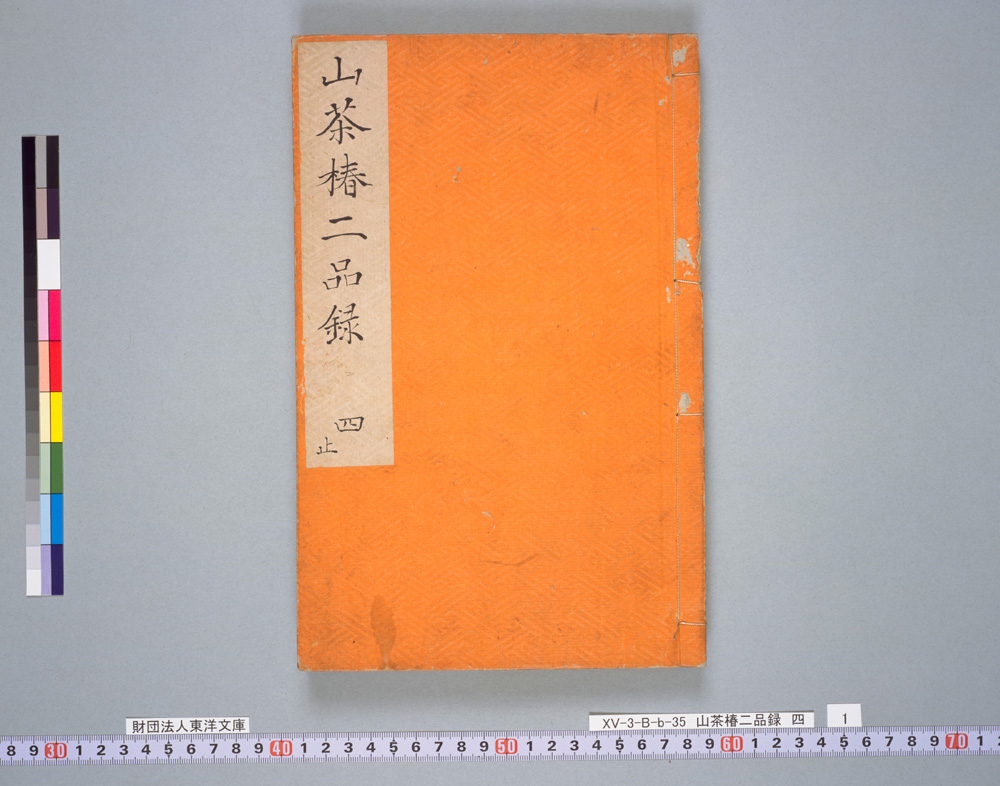 山茶椿二品録
四
止
財団法人東洋文庫
XV-3-B-b-35 山茶椿二品録 四
1
8 9 30 1 2 3 4 5 6 7 8 9 40 1 2 3 4 5 6 7 8 9 50 1 2 3 4 5 6 7 8 9 60 1 2 3 4 5 6 7 8 9 70 1 2